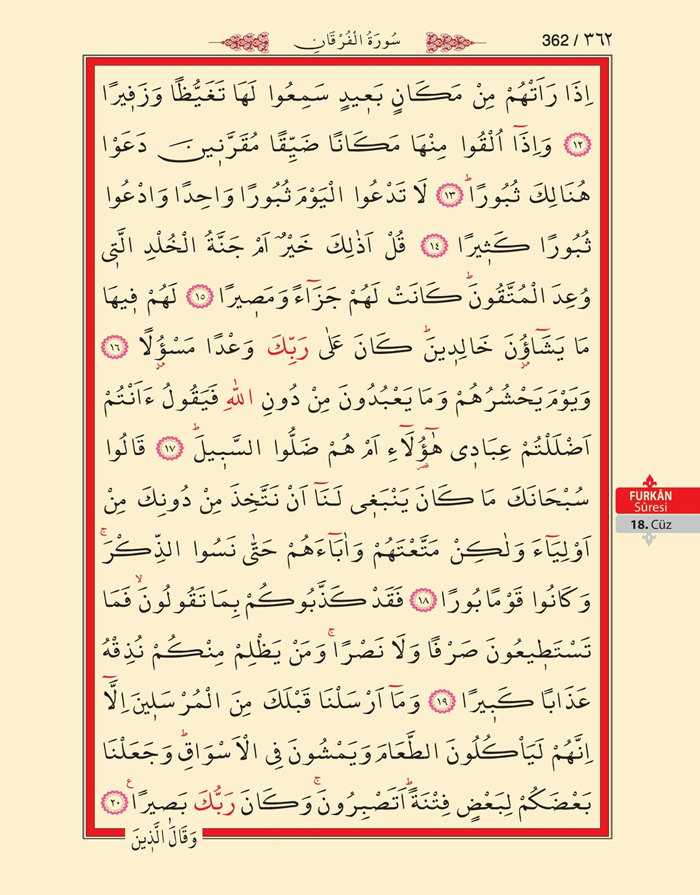 سُورَةُ الْفُرْقَانِ
362 / ٣٦٢
اِذَا رَاَتْهُمْ مِنْ مَكَانٍ بَع۪يدٍ سَمِعُوا لَهَا تَغَيُّظًا وَزَف۪يرًا
﴿١٢﴾ وَاِذَٓا اُلْقُوا مِنْهَا مَكَانًا ضَيِّقًا مُقَرَّن۪ينَ دَعَوْا
هُنَالِكَ ثُبُورًاۜ ﴿١٣﴾ لَا تَدْعُوا الْيَوْمَ ثُبُورًا وَاحِدًا وَادْعُوا
ثُبُورًا كَث۪يرًا ﴿١٤﴾ قُلْ اَذٰلِكَ خَيْرٌ اَمْ جَنَّةُ الْخُلْدِ الَّت۪ي
وُعِدَ الْمُتَّقُونَۜ كَانَتْ لَهُمْ جَزَٓاءً وَمَص۪يرًا ﴿١٥﴾ لَهُمْ ف۪يهَا
مَا يَشَٓاؤُ۫نَ خَالِد۪ينَۜ كَانَ عَلٰى رَبِّكَ وَعْدًا مَسْؤُ۫لًا ﴿١٦﴾
وَيَوْمَ يَحْشُرُهُمْ وَمَا يَعْبُدُونَ مِنْ دُونِ اللّٰهِ فَيَقُولُ ءَاَنْتُمْ
اَضْلَلْتُمْ عِبَاد۪ي هٰٓؤُ۬لَٓاءِ اَمْ هُمْ ضَلُّوا السَّب۪يلَۜ ﴿١٧﴾ قَالُوا
سُبْحَانَكَ مَا كَانَ يَنْبَغ۪ي لَنَٓا اَنْ نَتَّخِذَ مِنْ دُونِكَ مِنْ
اَوْلِيَٓاءَ وَلٰكِنْ مَتَّعْتَهُمْ وَاٰبَٓاءَهُمْ حَتّٰى نَسُوا الذِّكْرَۚ
وَكَانُوا قَوْمًا بُورًا ﴿١٨﴾ فَقَدْ كَذَّبُوكُمْ بِمَا تَقُولُونَۙ فَمَا
تَسْتَط۪يعُونَ صَرْفًا وَلَا نَصْرًاۚ وَمَنْ يَظْلِمْ مِنْكُمْ نُذِقْهُ
عَذَابًا كَب۪يرًا ﴿١٩﴾ وَمَٓا اَرْسَلْنَا قَبْلَكَ مِنَ الْمُرْسَل۪ينَ اِلَّٓا
اِنَّهُمْ لَيَأْكُلُونَ الطَّعَامَ وَيَمْشُونَ فِي الْاَسْوَاقِۜ وَجَعَلْنَا
بَعْضَكُمْ لِبَعْضٍ فِتْنَةًۜ اَتَصْبِرُونَۚ وَكَانَ رَبُّكَ بَص۪يرًا۟ ﴿٢٠﴾
وَقَالَ الَّذ۪ينَ
FURKÂN
Sûresi
18. Cüz